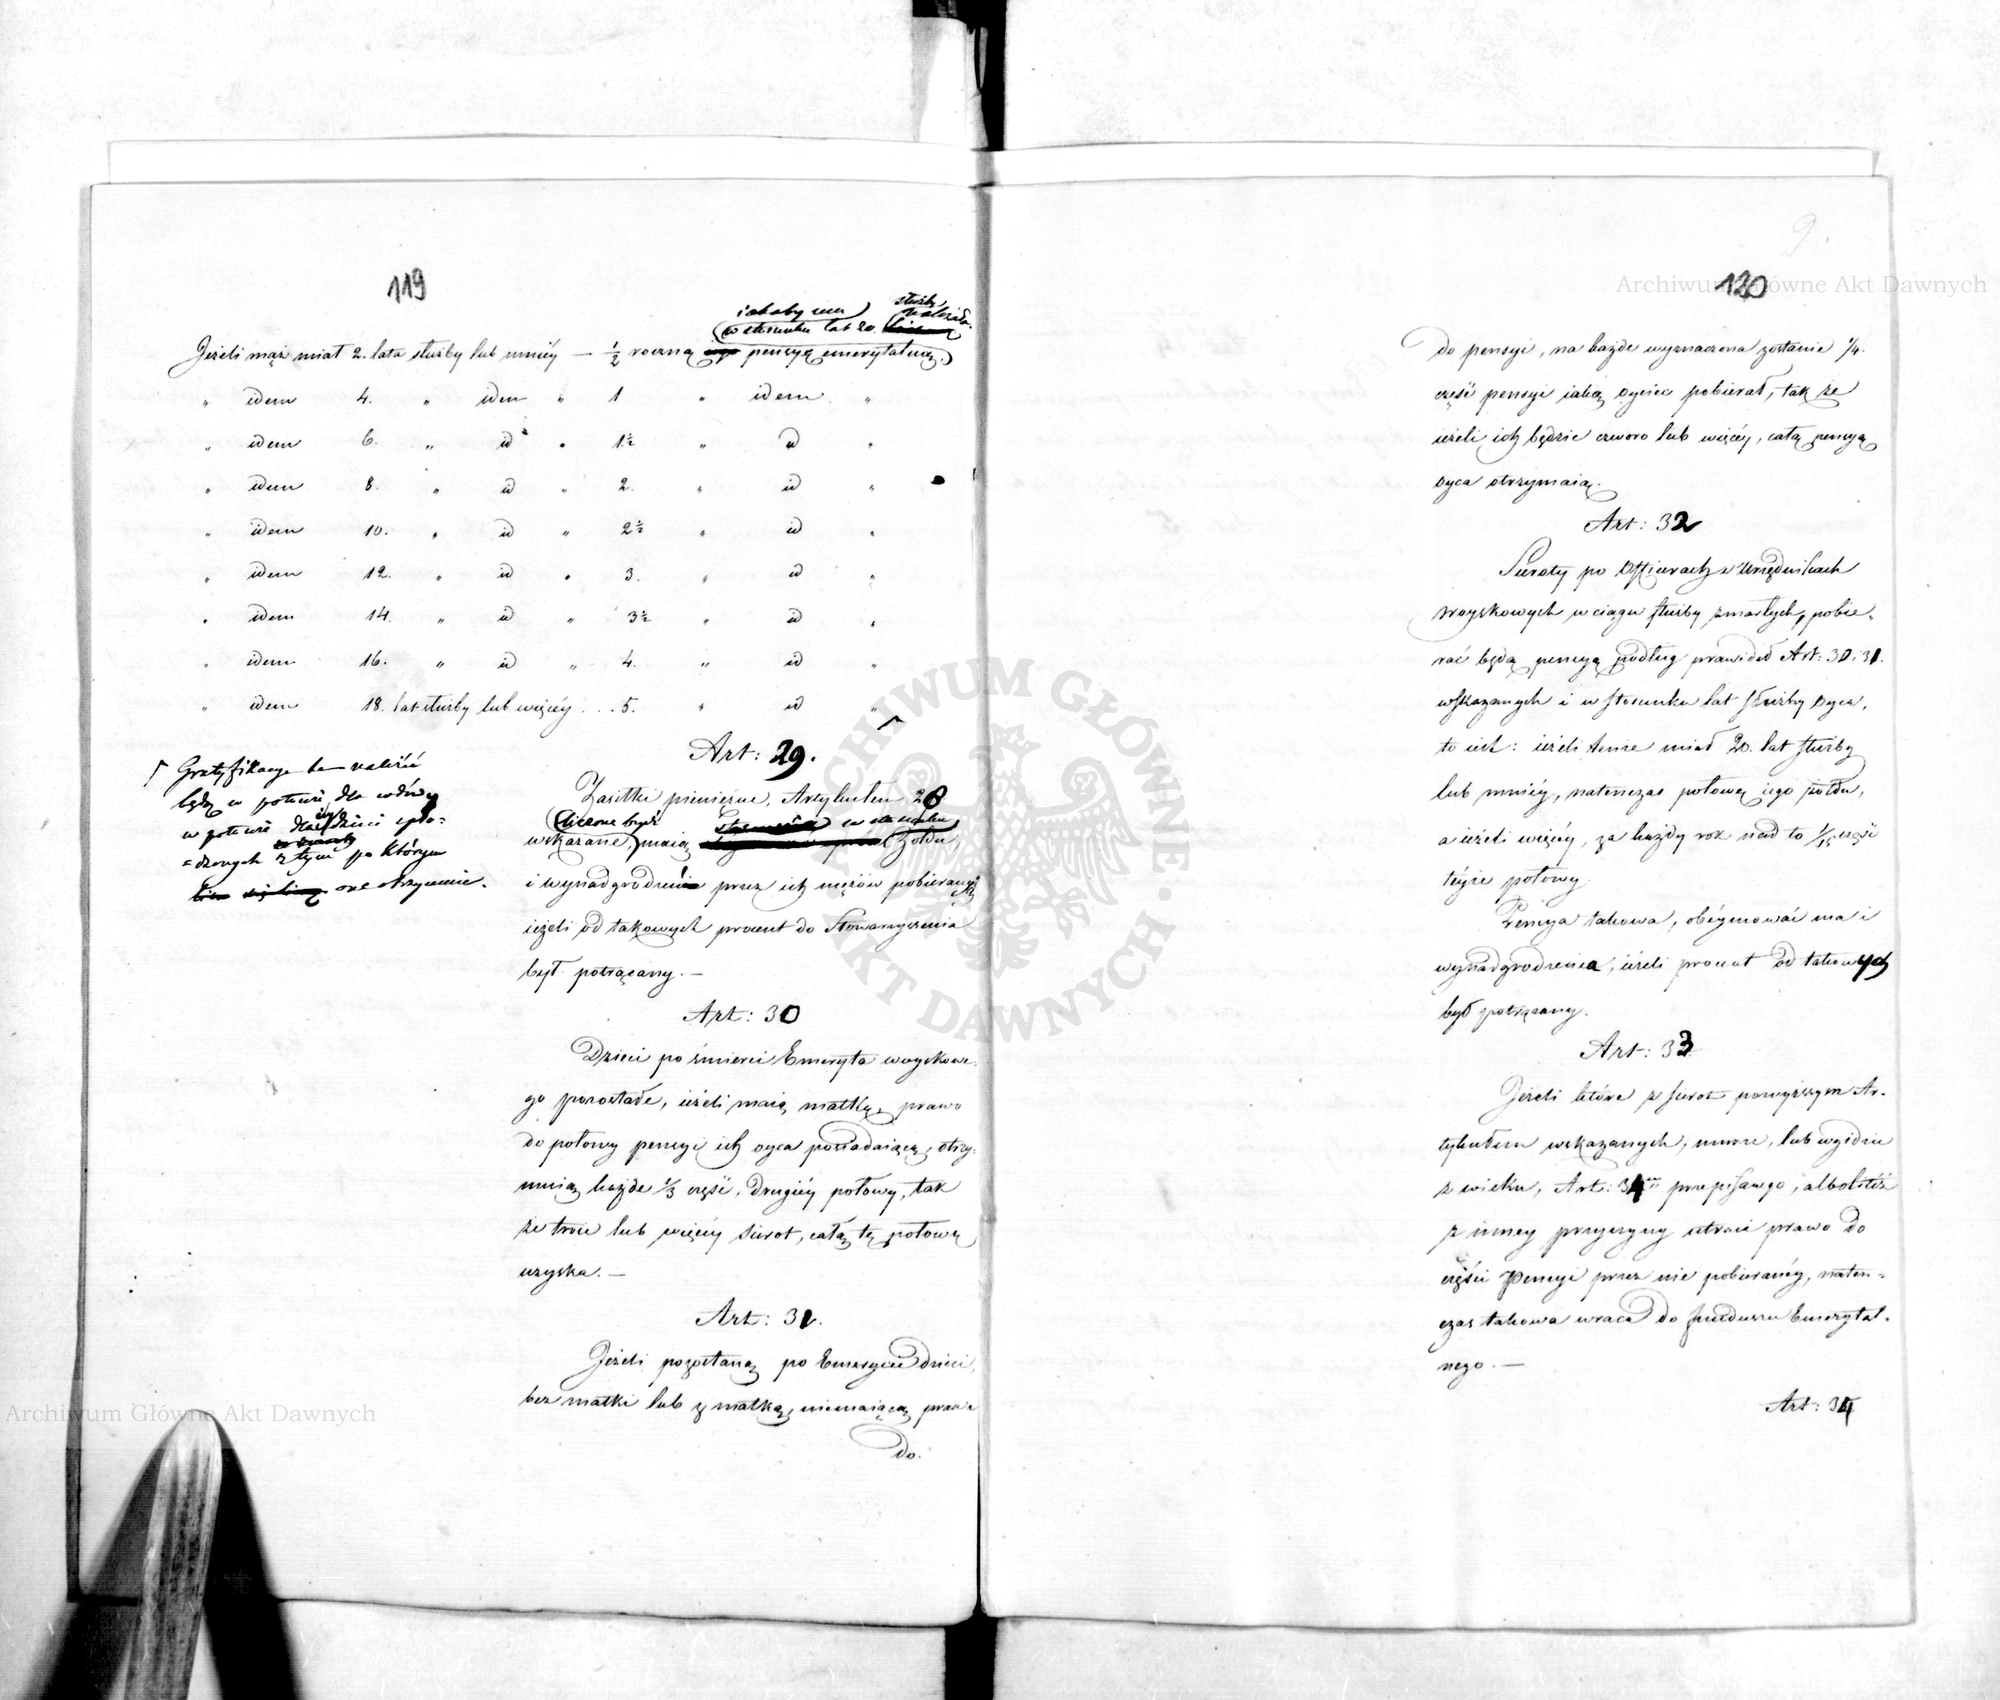 119
iakaby mu służby należała
w stosunku lat 20.
Jeżeli mąż miał 2. lata służby lub mniéy — ½ roczną pensyą emerytalną.
„ idem 4. „ idem „ 1 „ idem „
„ idem 6. „ id „ 1½ „ id „
„ idem 8. „ id „ 2. „ id „
„ idem 10. „ id „ 2½ „ id „
„ idem 12. „ id „ 3. „ id „
„ idem 14. „ id „ 3½ „ id „
„ idem 16. „ id „ 4. „ id „
„ idem 18. lat służby lub więcéy . . . 5. „ id „
Art: 29.
Gratyfikacye te należéć
będą w połowie dla wdowy
w połowie dla dzieci spło-
=dzonych z tym po którym
one otrzymuie.
Zasiłki pieniężne, Artykułem 28
liczone bydź w stosunku
wskazane, maią żołdu,
i wynadgrodzenia przez ich mężów pobieranych
ieżeli od takowych procent do Stowarzyszenia
był potrącany. —
Art: 30
Dzieci po śmierci Emeryta woyskowe-
go pozostałe, ieżeli maią matkę, prawo
do połowy pensyi ich oyca posiadaiącą, otrzy-
muią każde 1/3 część, drugiéy połowy, tak
że troie lub więcéy sierot, całą tę połowę
uzyska. —
Art: 31.
Jeżeli pozostaną po Emerycie dzieci,
bez matki lub z matką, niemaiącą prawa
do.
9.
120
do pensyi, na każde wyznaczona zostanie 1/4.
część pensyi iaką oyciec pobierał, tak że
ieżeli ich będzie czworo lub więcéy, całą pensyą
oyca otrzymaią.
Art: 32
Sieroty po Officerach i Urzędnikach
Woyskowych w ciągu służby zmarłych, pobie-
rać będą pensyą podług prawideł Art: 30 i 31.
wskazanych i w stosunku lat służby Oyca,
to iest: ieżeli tenże miał 20. lat służby
lub mniéy, natenczas połowę iego żołdu,
a ieżeli więcéy, za każdy rok nad to 1/15 część
téyże połowy.
Pensya takowa, obéymować ma i
wynadgrodzenia, ieżeli procent od takowych
był potrącany.
Art: 33
Jeżeli które z sierot powyższym Ar-
tykułem wskazanych, umrze, lub wyidzie
z wieku, Art: 34 przepisanego, albo też
z inney przyczyny utraci prawo do
części Pensyi przez nie pobieranéy, naten-
czas takowa wraca do funduszu Emerytal-
nego. —
Art: 34
Archiwum Główne Akt Dawnych
Archiwum Główne Akt Dawnych
ARCHIWUM GŁÓWNE AKT DAWNYCH